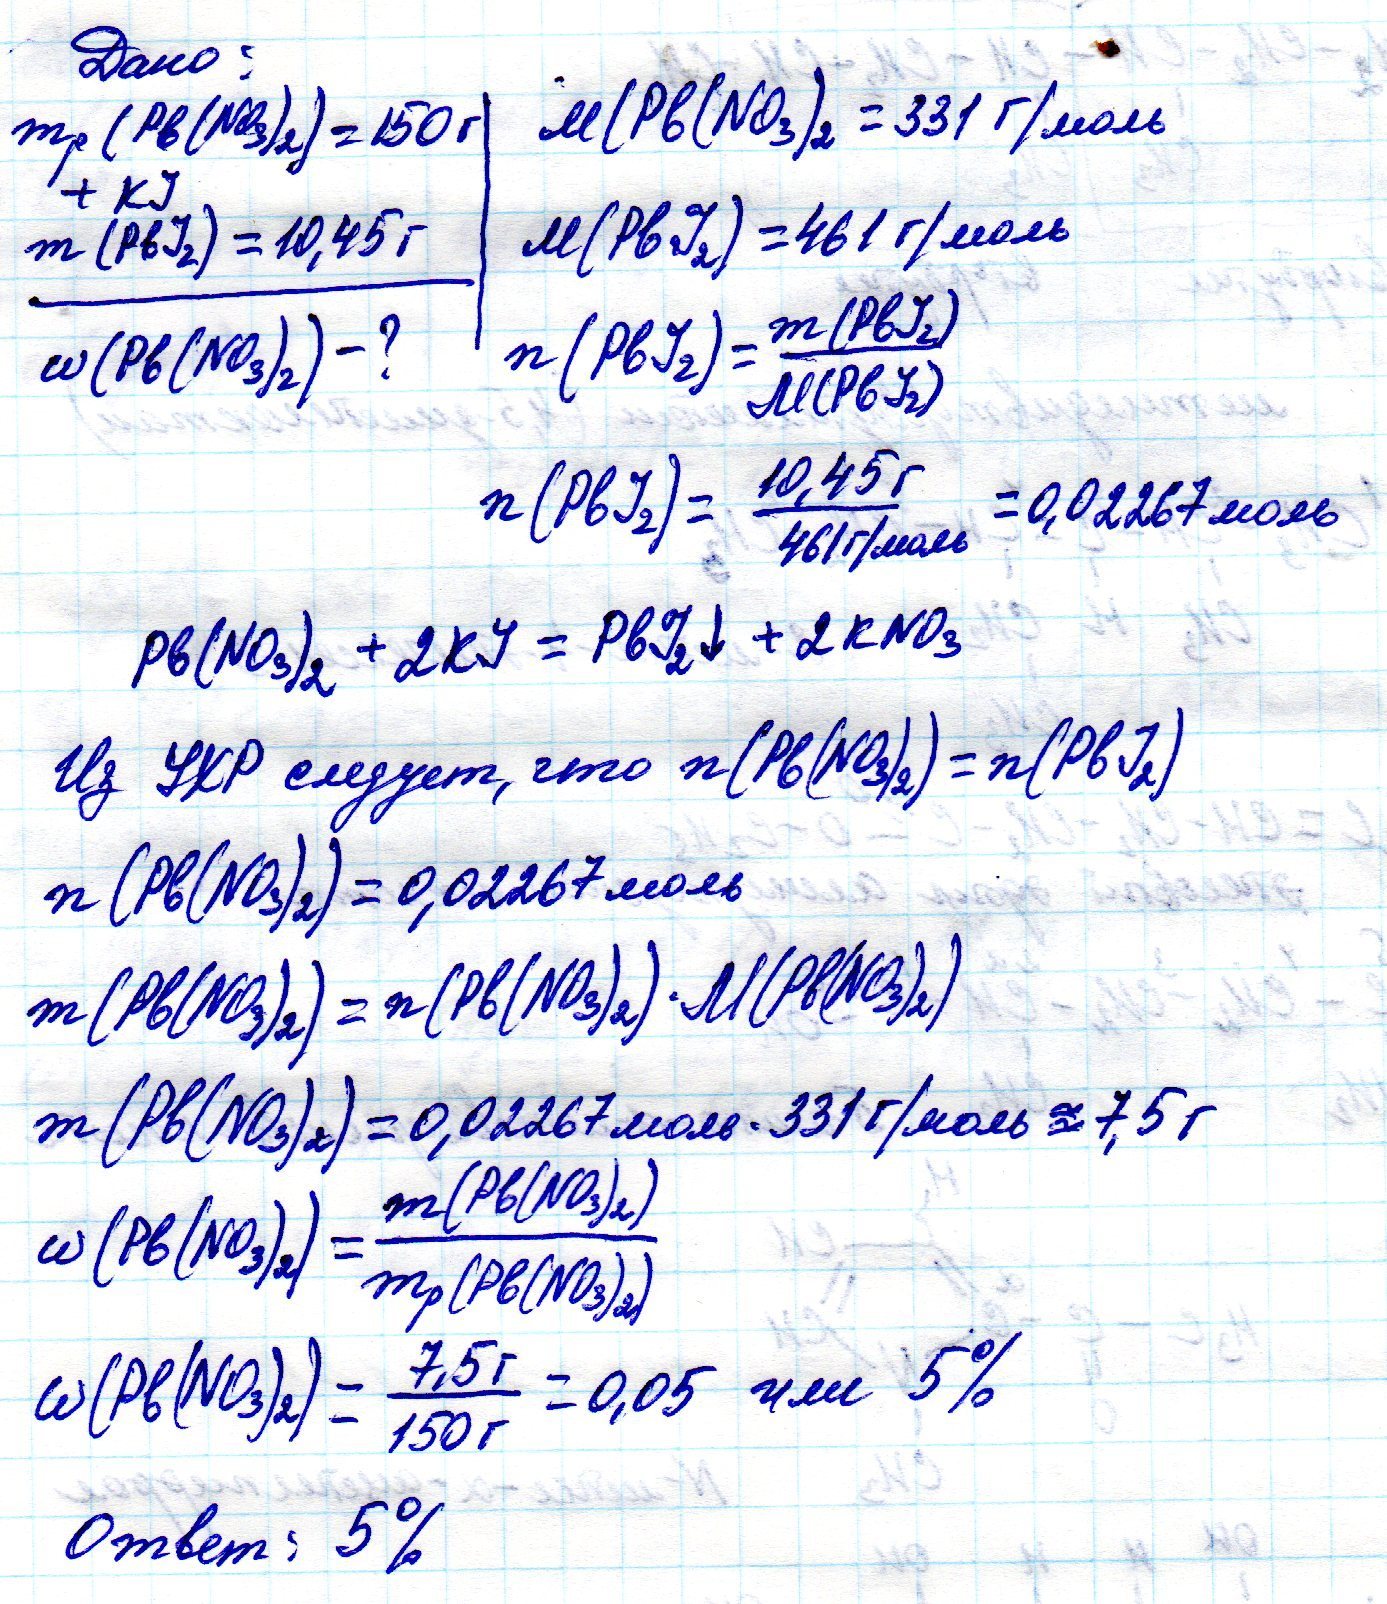 Дано:
mр(Pb(NO3)2)=150г
+ KJ
m(PbJ2)=10,45г
ω(Pb(NO3)2)-?
M(Pb(NO3)2=331 г/моль
M(PbJ2)=461 г/моль
n(PbJ2)=m(PbJ2)/M(PbJ2)
n(PbJ2)= 10,45г/461г/моль =0,02267моль
Pb(NO3)2 + 2KJ = PbJ2↓ + 2KNO3
Из УХР следует, что n(Pb(NO3)2)=n(PbJ2)
n(Pb(NO3)2)=0,02267моль
m(Pb(NO3)2)=n(Pb(NO3)2)·M(Pb(NO3)2)
m(Pb(NO3)2)=0,02267моль·331г/моль≈7,5г
ω(Pb(NO3)2)=m(Pb(NO3)2)/mр(Pb(NO3)2)
ω(Pb(NO3)2)=7,5г/150г=0,05 или 5%
Ответ: 5%